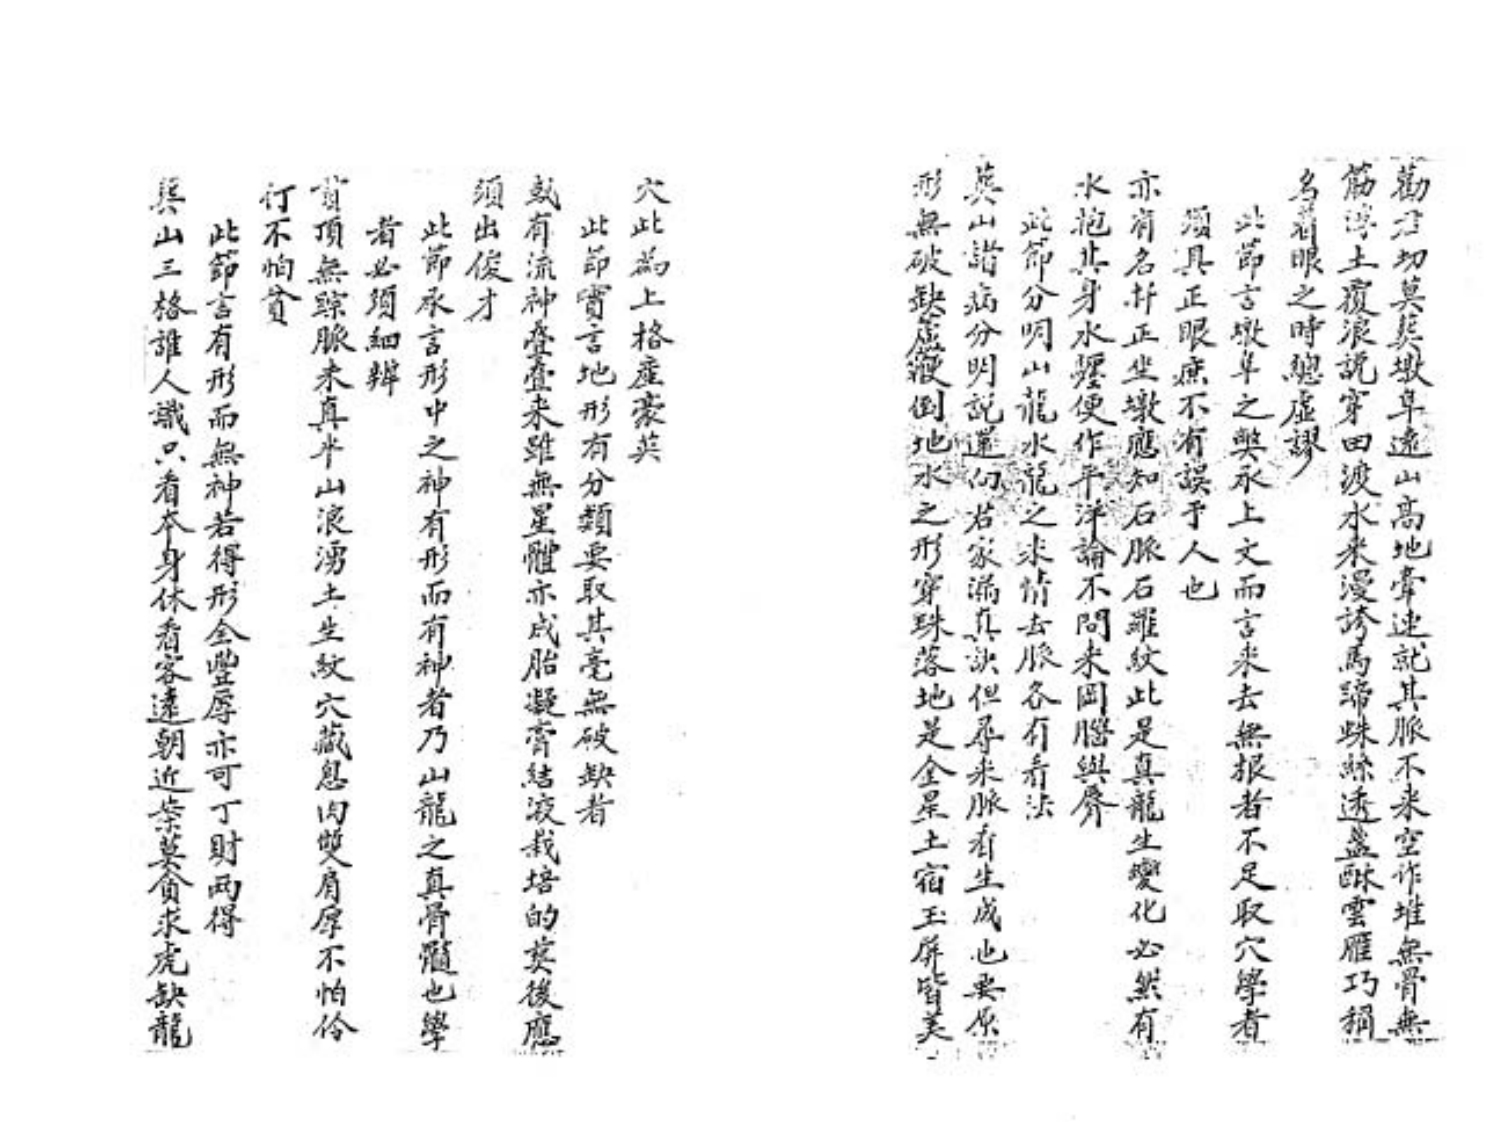 勸君切莫葬墩阜遠山高地牽連就其脈不来空作堆無骨無
筋浮土覆浪説穿田渡水来漫誇馬蹄蛛絲透蘆酥雲雁巧稱
名着眼之時總虛謬
此節言墩阜之弊承上文而言来去無根者不足取穴學者
須具正眼庶不有誤于人也
亦有名扦正坐墩應知石脈石羅紋此是真龍生變化必然有
水抱其身水纏便作平洋論不問来岡腦與唇
此節分明山龍水龍之来情去脈各有看法
葬山諸病分明説還仞君家漏真訣但尋来脈看生成也要原
形無破缺虛鞭倒地水之形穿珠落地是金星土宿玉屏皆美
穴此為上格産豪英
此節實言地形有分類要取其毫無破缺者
或有流神疊疊来雖無星體亦成胎凝膏結液栽培的葬後應
須出俊才
此節承言形中之神有形而有神者乃山龍之真骨髓也學
者必須細辨
頂無踪脈未真半山浪湧土生紋穴藏息肉雙肩厚不怕伶
仃不怕貧
此節言有形而無神若得形全豐厚亦可丁財両得
葬山三格誰人識只看本身休看客遠朝近案莫貪求虎缺龍